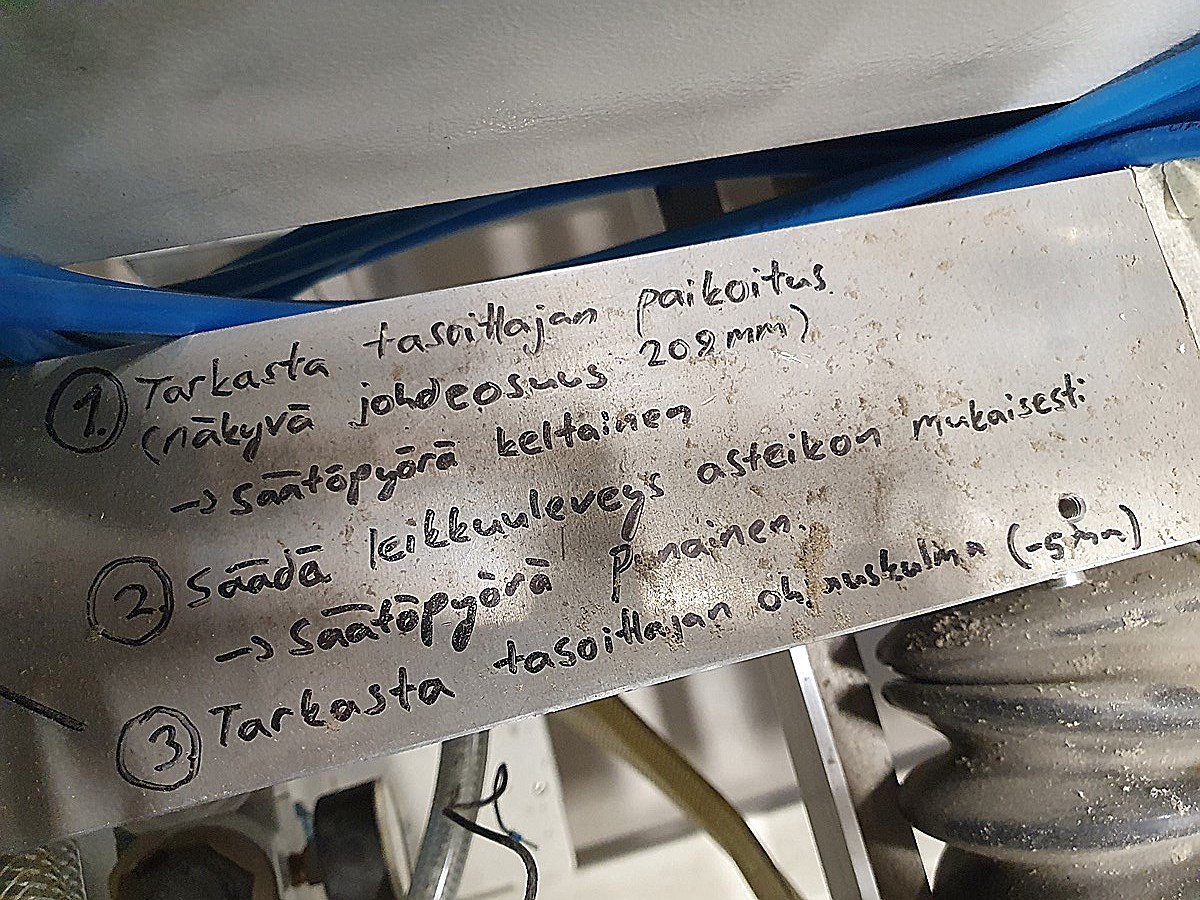 1. Tarkasta tasoittajan paikoitus
(näkyvä johdeosuus 209mm)
→ säätöpyörä keltainen
2. Säädä leikkuuleveys asteikon mukaisesti
→ Säätöpyörä Punainen.
3. Tarkasta tasoittajan ohjauskulma (-5mm)